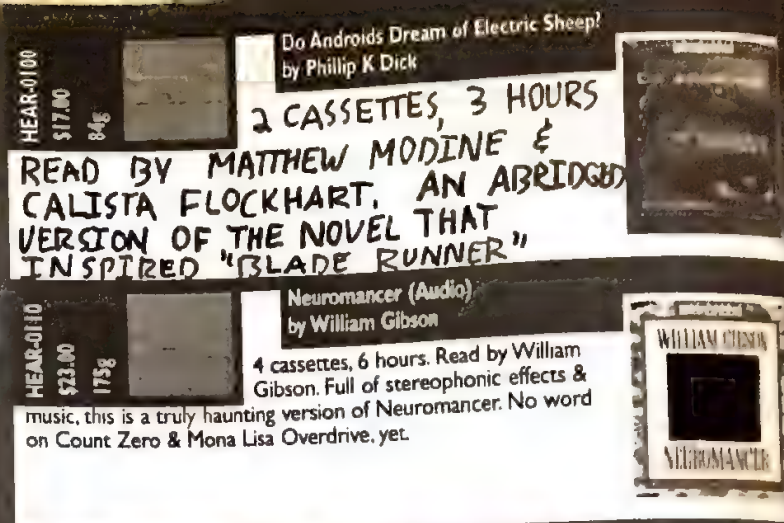 HEAR-0100
$17.00
84g
Do Androids Dream of Electric Sheep?
by Phillip K Dick
2 CASSETTES, 3 HOURS
READ BY MATTHEW MODINE &
CALISTA FLOCKHART. AN ABRIDGED
VERSION OF THE NOVEL THAT
INSPIRED "BLADE RUNNER"
HEAR-0110
$23.00
175g
Neuromancer (Audio)
by William Gibson
4 cassettes, 6 hours. Read by William
Gibson. Full of stereophonic effects &
music, this is a truly haunting version of Neuromancer. No word
on Count Zero & Mona Lisa Overdrive, yet.
WILLIAM GIBSON
NEUROMANCER